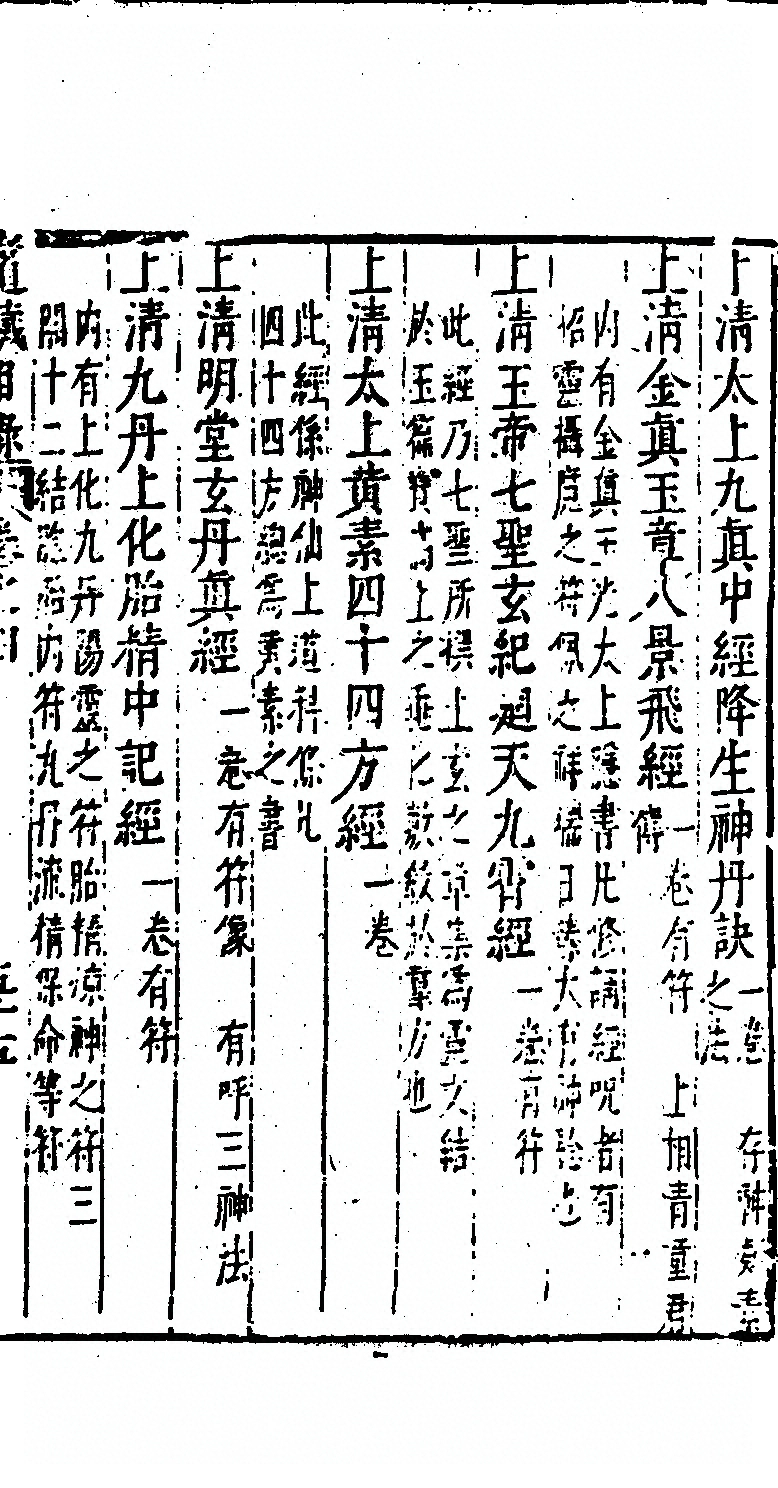 上清太上九眞中經降生神丹訣一卷 存神
之法
上清金眞玉章八景飛經一卷有符 上相青童君
傳
内有金眞玉光太上隱書凡修誦經呪者有
招靈攝魔之符佩之 大有神 也
上清玉帝七聖玄紀迴天九霄經一卷有符
此經乃七聖所撰上玄之章集爲靈文結
於玉篇 上之 化敷 於羣方也
上清太上黄素四十四方經一卷
此經係神仙上道科條凡
四十四方總爲黄素之書
上清明堂玄丹眞經一卷有符像 有呼三神法
上清九丹上化胎精中記經一卷有符
内有上化九丹陽靈之符胎精凉神之符三
關十二結 胎内符九丹流精保命等符
道藏目錄 卷之四 五十五